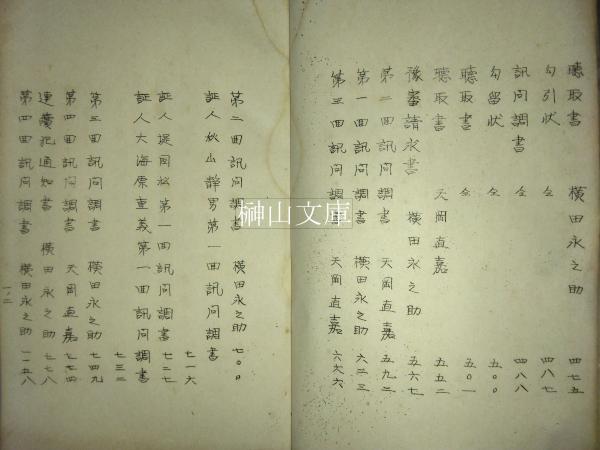 聴取書 横田永之助 四七五
勾引状 仝 四八七
訊問調書 仝 四八八
勾留状 仝 五〇〇
聴取書 仝 五〇一
聴取書 天岡直嘉 五五二
豫審請求書 横田永之助 五六七
第二回訊問調書 天岡直嘉 五九二
第一回訊問調書 横田永之助 六二三
第三回訊問調書 天岡直嘉 六六六
第二回訊問調書 横田永之助 七〇〇
証人秋山静男第一回訊問調書 七一六
証人堤岡松第一回訊問調書 七二七
証人大海原重義第一回訊問調書 七三二
第三回訊問調書 横田永之助 七四九
第四回訊問調書 天岡直嘉 七七四
連座犯通知書 横田永之助 七七八
第四回訊問調書 横田永之助 一一五八
一、二
榊山文庫